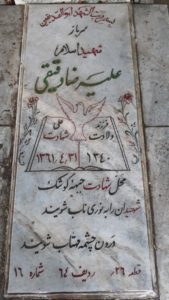 سرباز
شهید اسلام
علیرضا رفیقی
فرزند علی
ولادت شهادت
۱۳۴۰ ۱۳۶۱,۴,۳۱
محل شهادت جبهه کوشک
شهیدان را به نوری ناب شوئید
درون چشمه مهتاب شوئید
قطعه ۲۶ ردیف ۶۴ شماره ۱۶